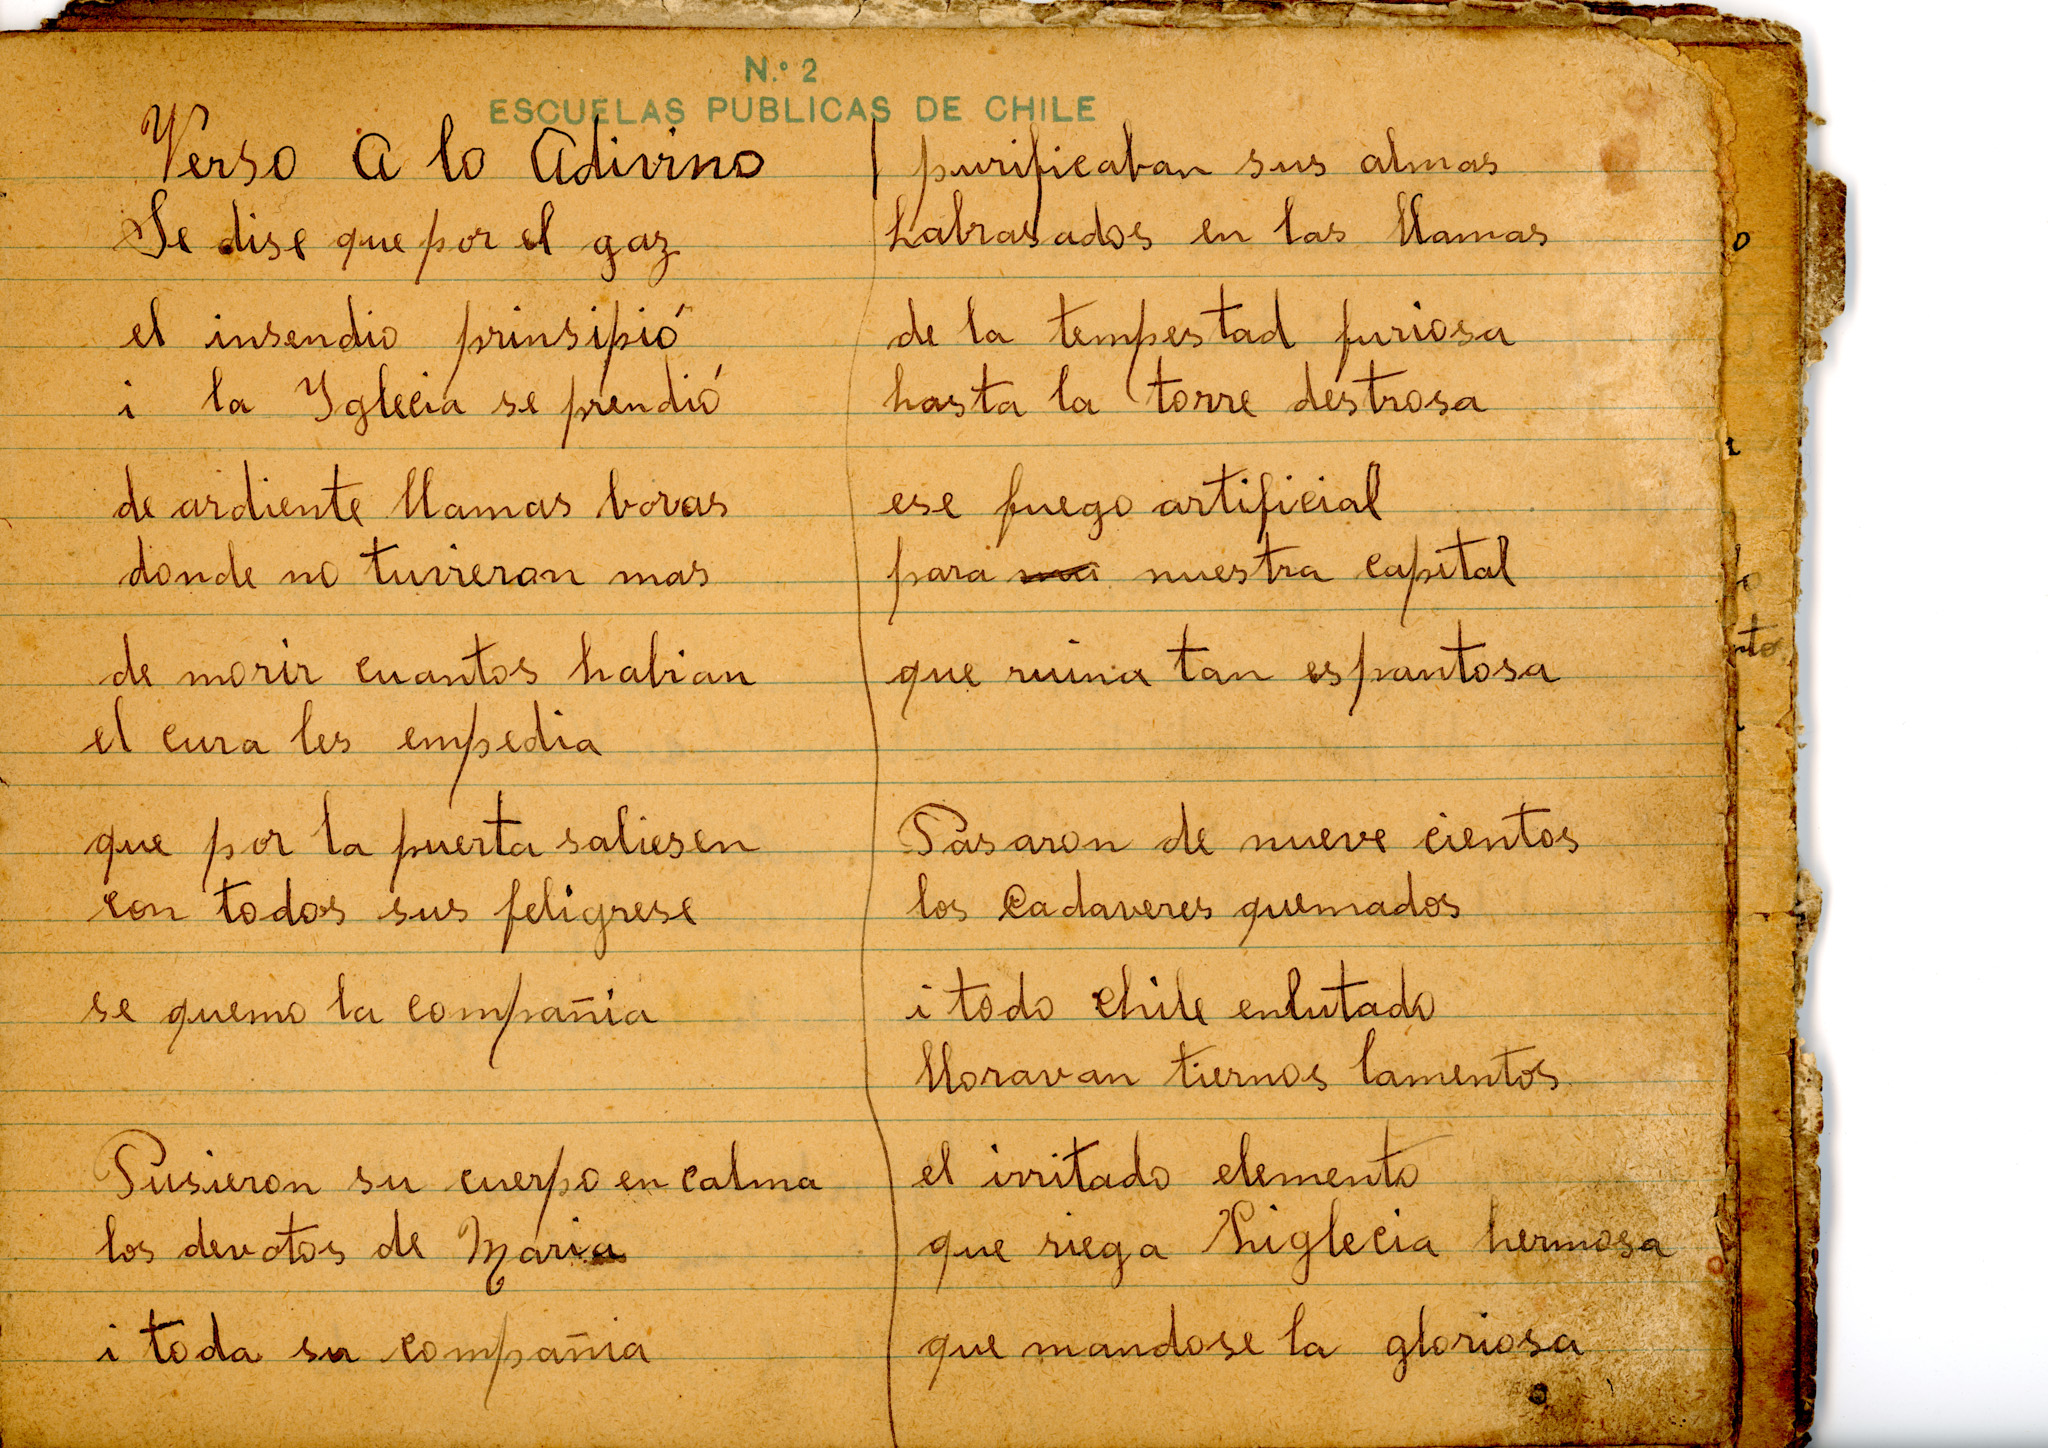 N.º 2
ESCUELAS PUBLICAS DE CHILE
Verso A lo Adivino
Se dise que por el gaz
el insendio prinsipió
i la Yglecia se prendió
de ardiente llamas boras
donde no tuvieran mas
de morir cuantos habian
el cura les empedia
que por la puerta saliesen
con todos sus feligrese
se quemo la compañia
Pusieron su cuerpo en calma
los devotos de Maria
i toda su compañia
purificaban sus almas
habrasados en las llamas
de la tempestad furiosa
hasta la torre destrosa
ese fuego artificial
para nuestra capital
que ruina tan espantosa
Pasaron de nueve cientos
los Cadaveres quemados
i todo Chile enlutado
lloravan tiernos lamentos
el irritado elemento
que riega higlecia hermosa
que mandose la gloriosa